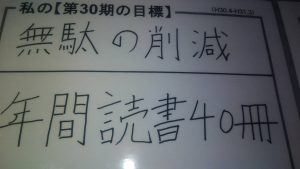 私の【第30期の目標】 (H30.4-H31.3)
無駄の削減
年間読書40冊